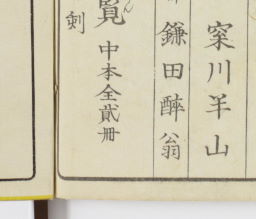 寀川羊山
鎌田酔翁
覧 中本全貳冊
刺